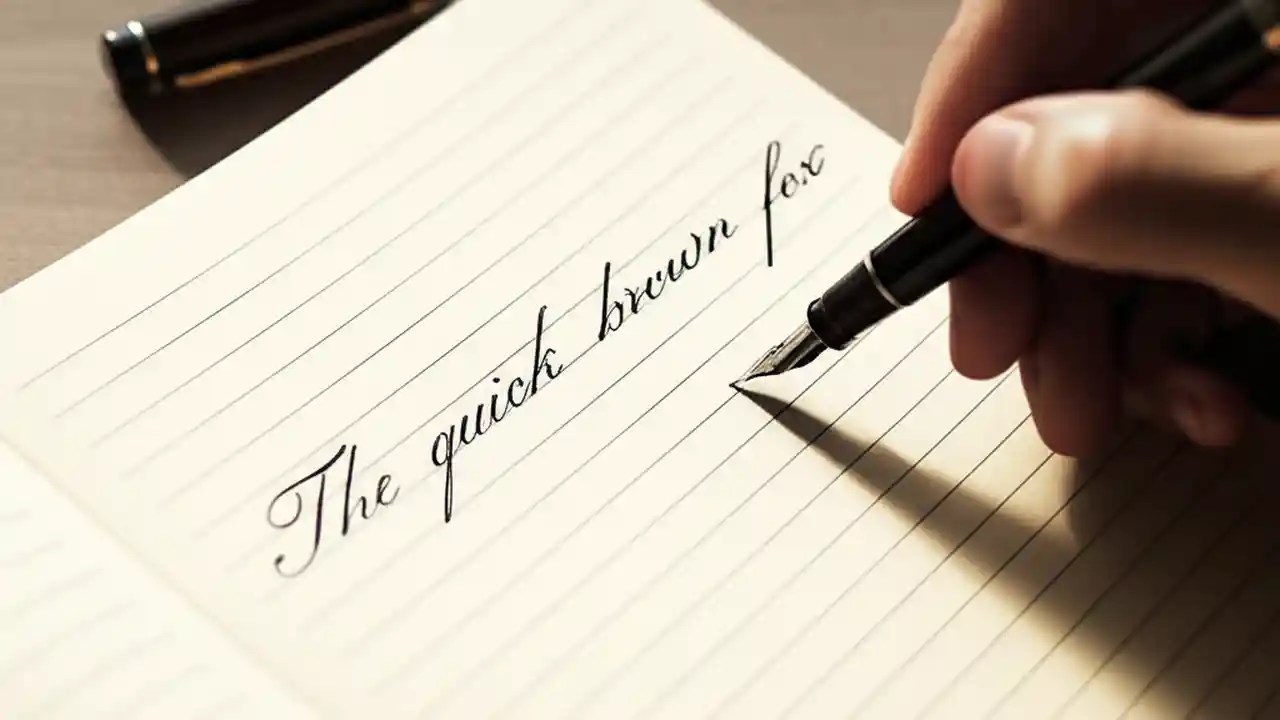 The quick brown fox